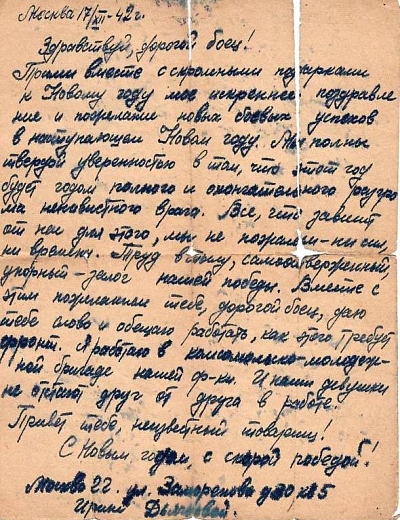 Москва 17/XII-42 г.
Здравствуй, дорогой боец!
Прими вместе с скромными подарками
к Новому году мое искреннее поздравле
ние и пожелание новых боевых успехов
в наступающем Новом году. Мы полны
твердой уверенностью в том, что этот год
будет годом полного и окончательного разгро
ма ненавистного врага. Все, что зависит
от нас для этого, мы не пожалеем - ни сил,
ни времени. Труд в тылу, самоотверженный,
упорный - залог нашей победы. Вместе с
этим пожеланием тебе, дорогой боец, даю
тебе слово и обещаю работать, как этого требует
фронт. Я работаю в комсомольско-молодеж-
ной бригаде нашей ф-ки. И наши девушки
не отстают друг от друга в работе.
Привет тебе, неизвестный товарищ!
С Новым годом, с скорой победой!
Москва 22. ул. д 30 кв 5
Ирине